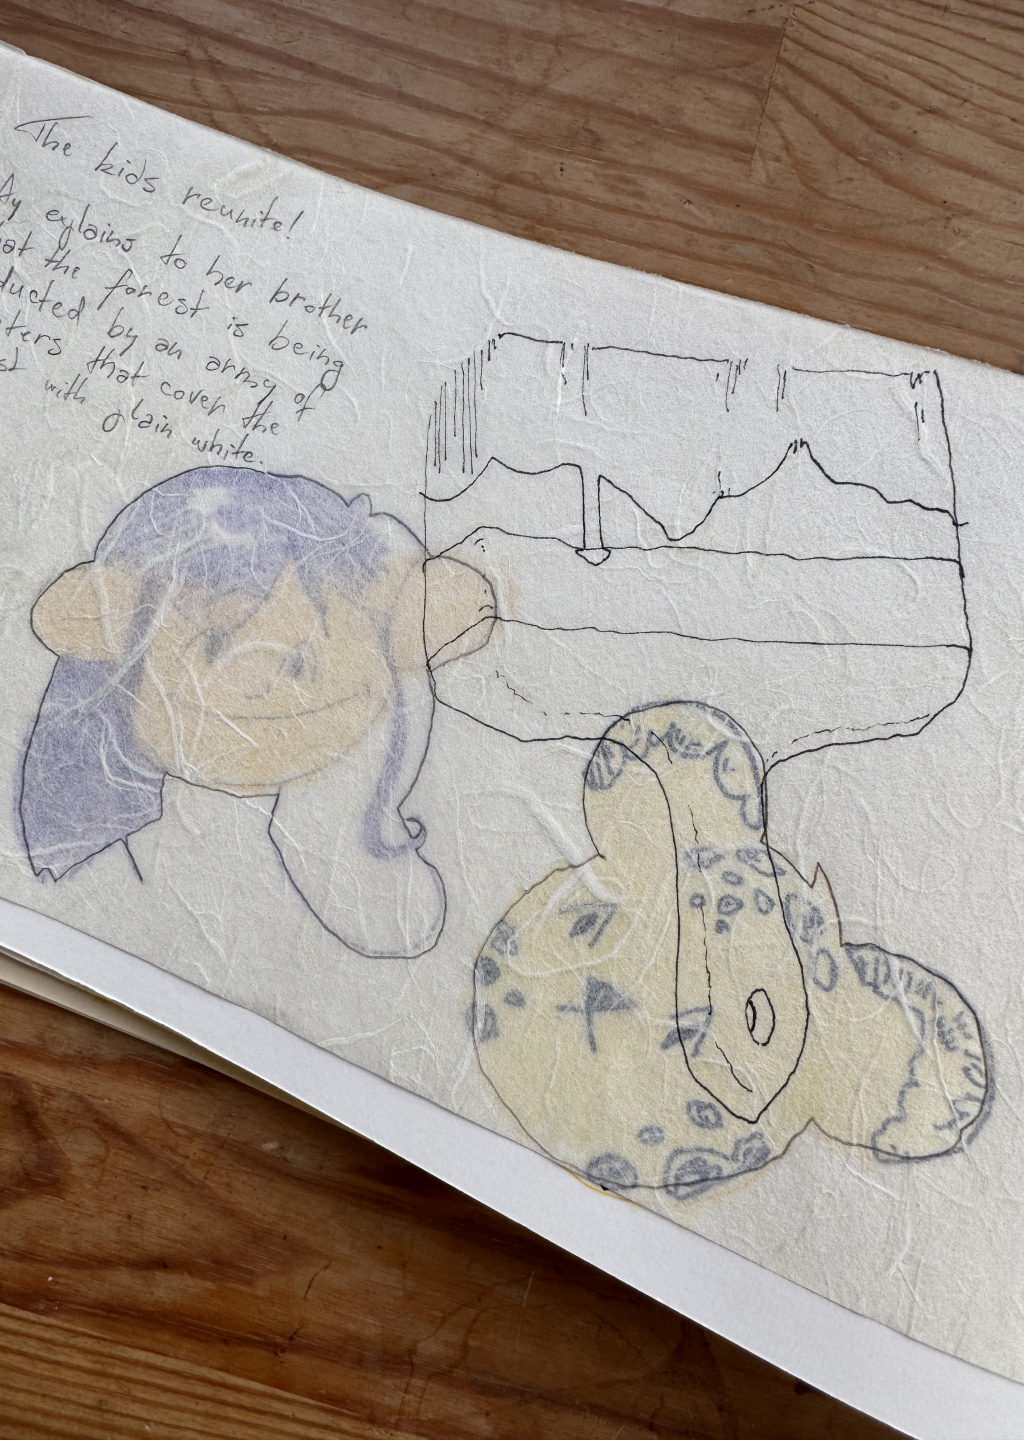 The kids reunite!
Ay explains to her brother
at the forest is being
ducted by an army of
ters that cover the
st with plain white.